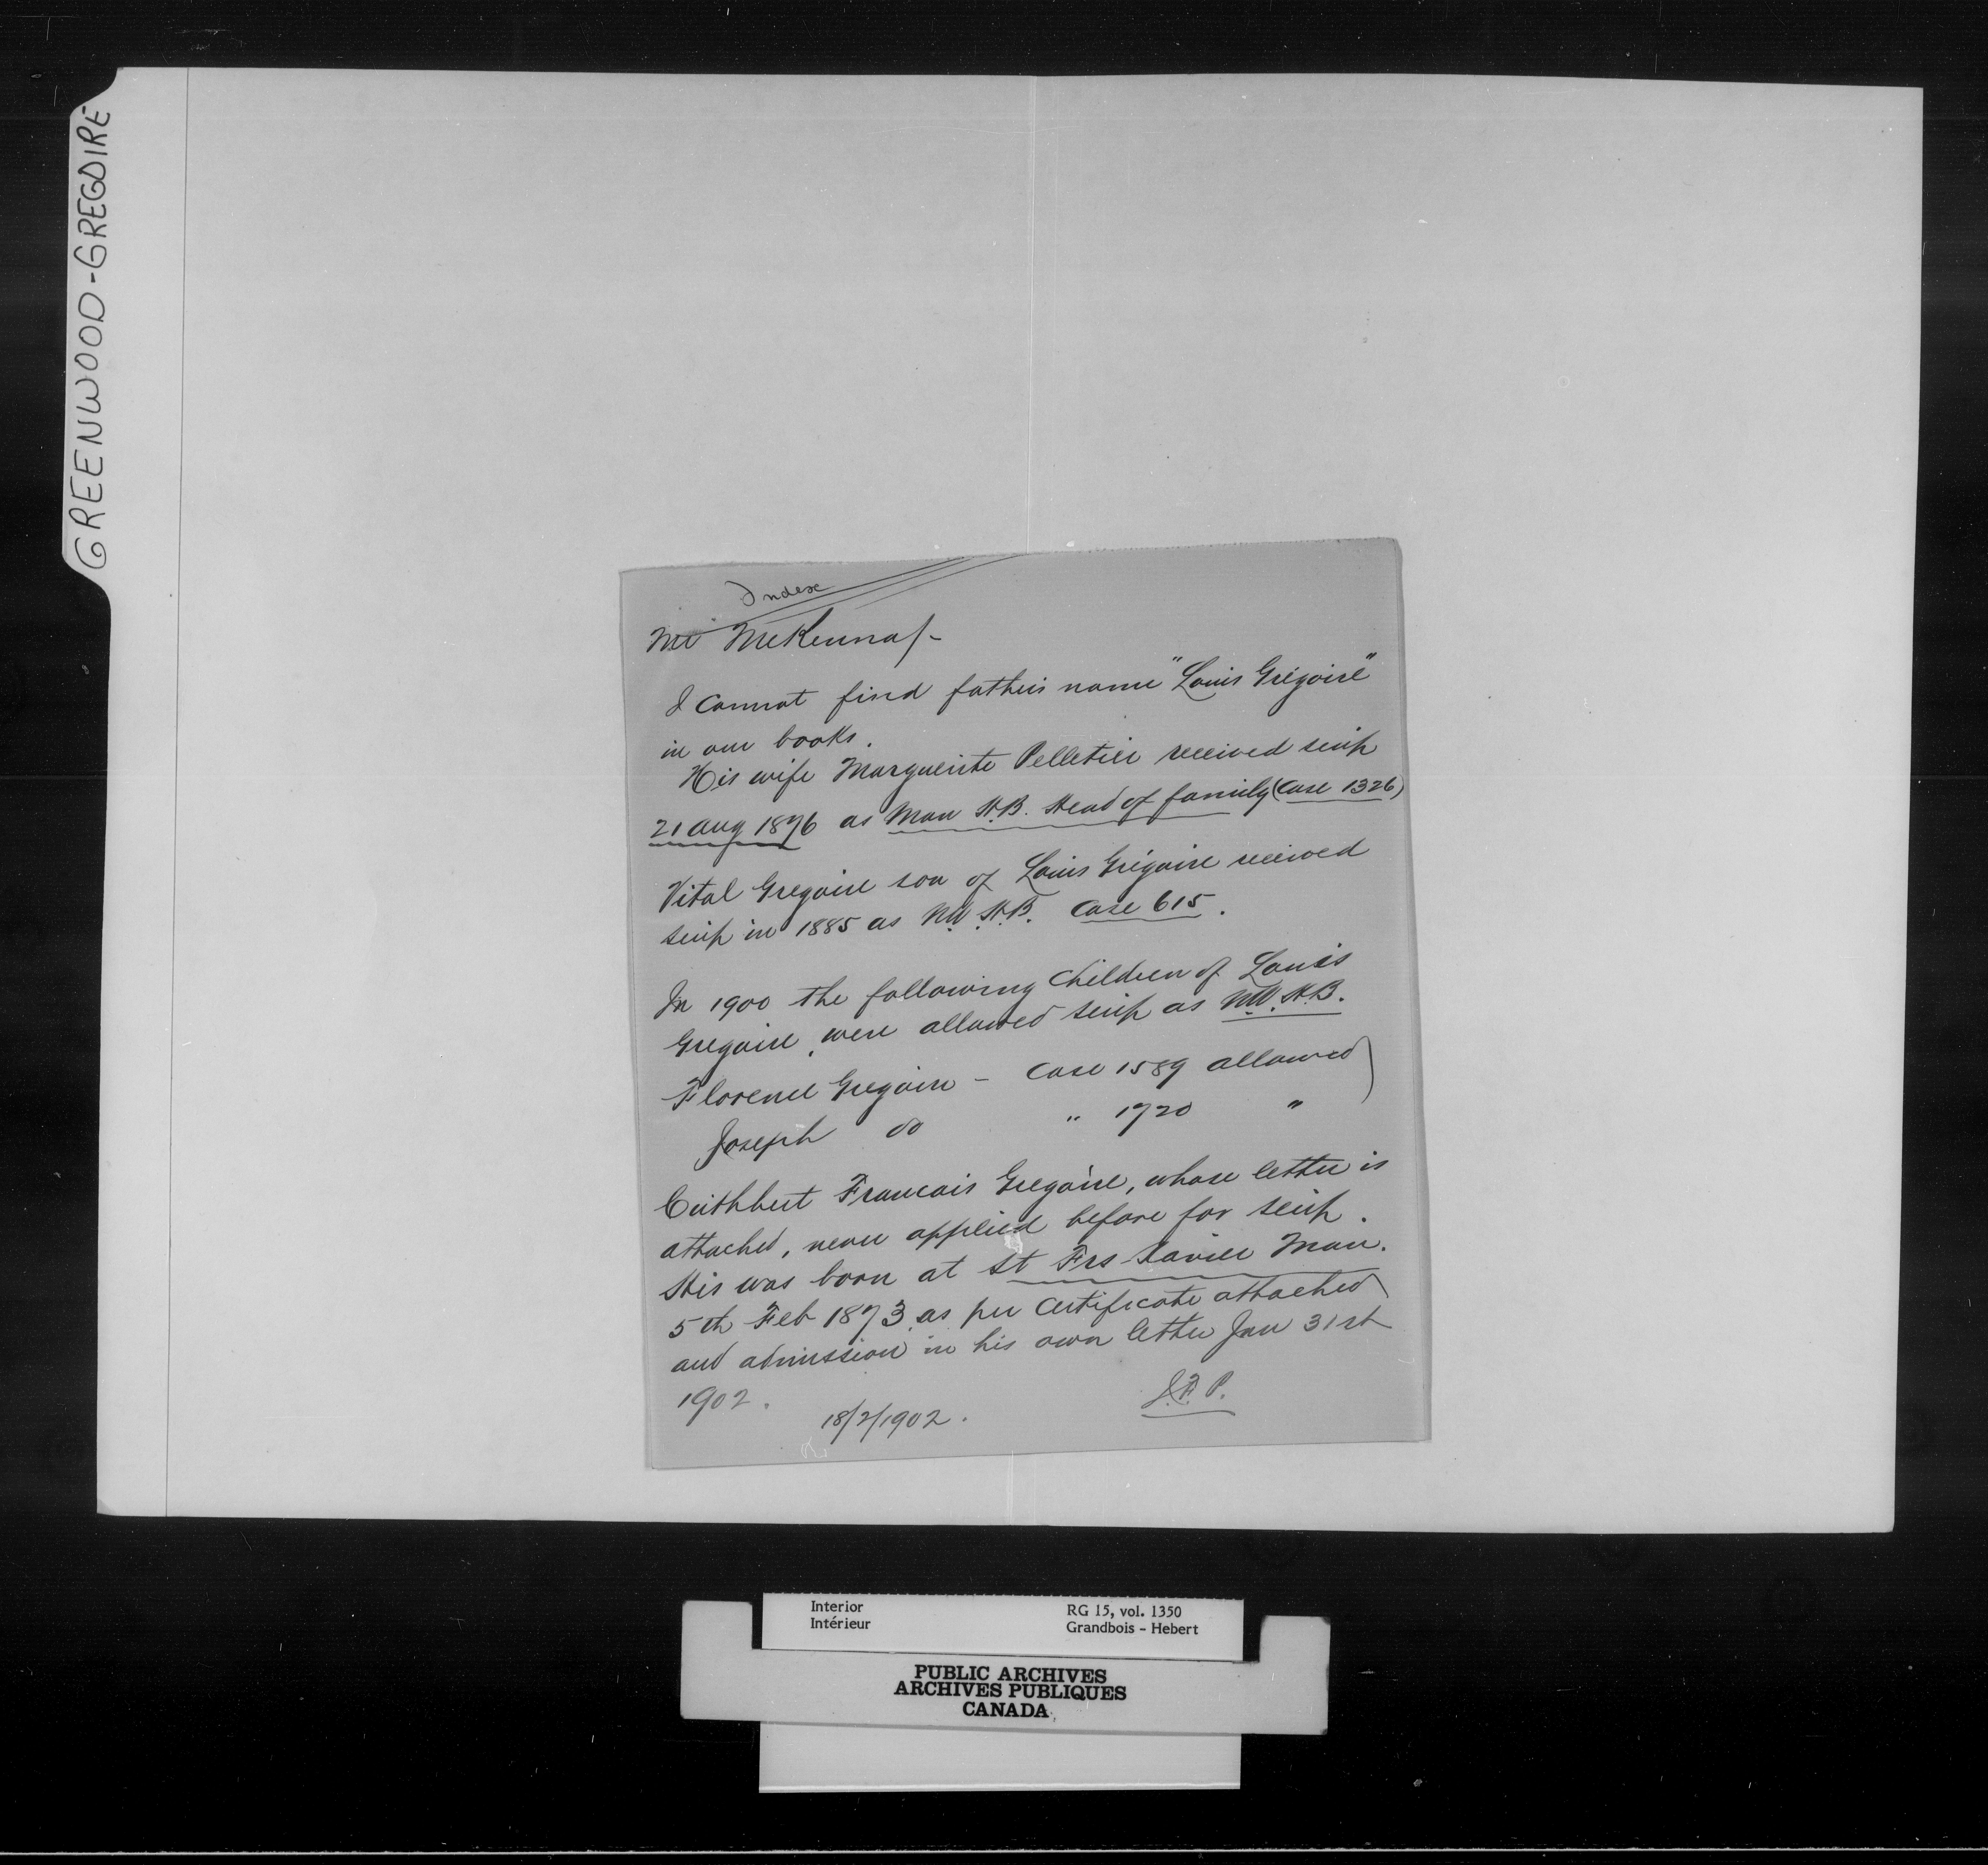 GREENWOOD-GREGOIRE
Index
Mr McKenna/-
I cannot find father's name "Louis Grégoire"
in our books.
His wife Marguerite Pelletier received scrip
21 Aug 1876 as Man H.B. Head of family (Case 1326)
Vital Gregoire son of Louis Grégoire received
scrip in 1885 as N.W. H.B. Case 615.
In 1900 the following children of Louis
Gregoire, were allowed scrip as N.W. H.B.
Florence Gregoire - Case 1589 allowed
Joseph do " 1720 "
Cuthbert Francais Gregoire, whose letter is
attached, never applied before for scrip.
His was born at St Frs Xavier Man.
5th Feb 1873 as per Certificate attached
and admission in his own letter Jan 31st
1902.
18/2/1902.
Interior
Intérieur
RG 15, vol. 1350
Grandbois - Hebert
PUBLIC ARCHIVES
ARCHIVES PUBLIQUES
CANADA